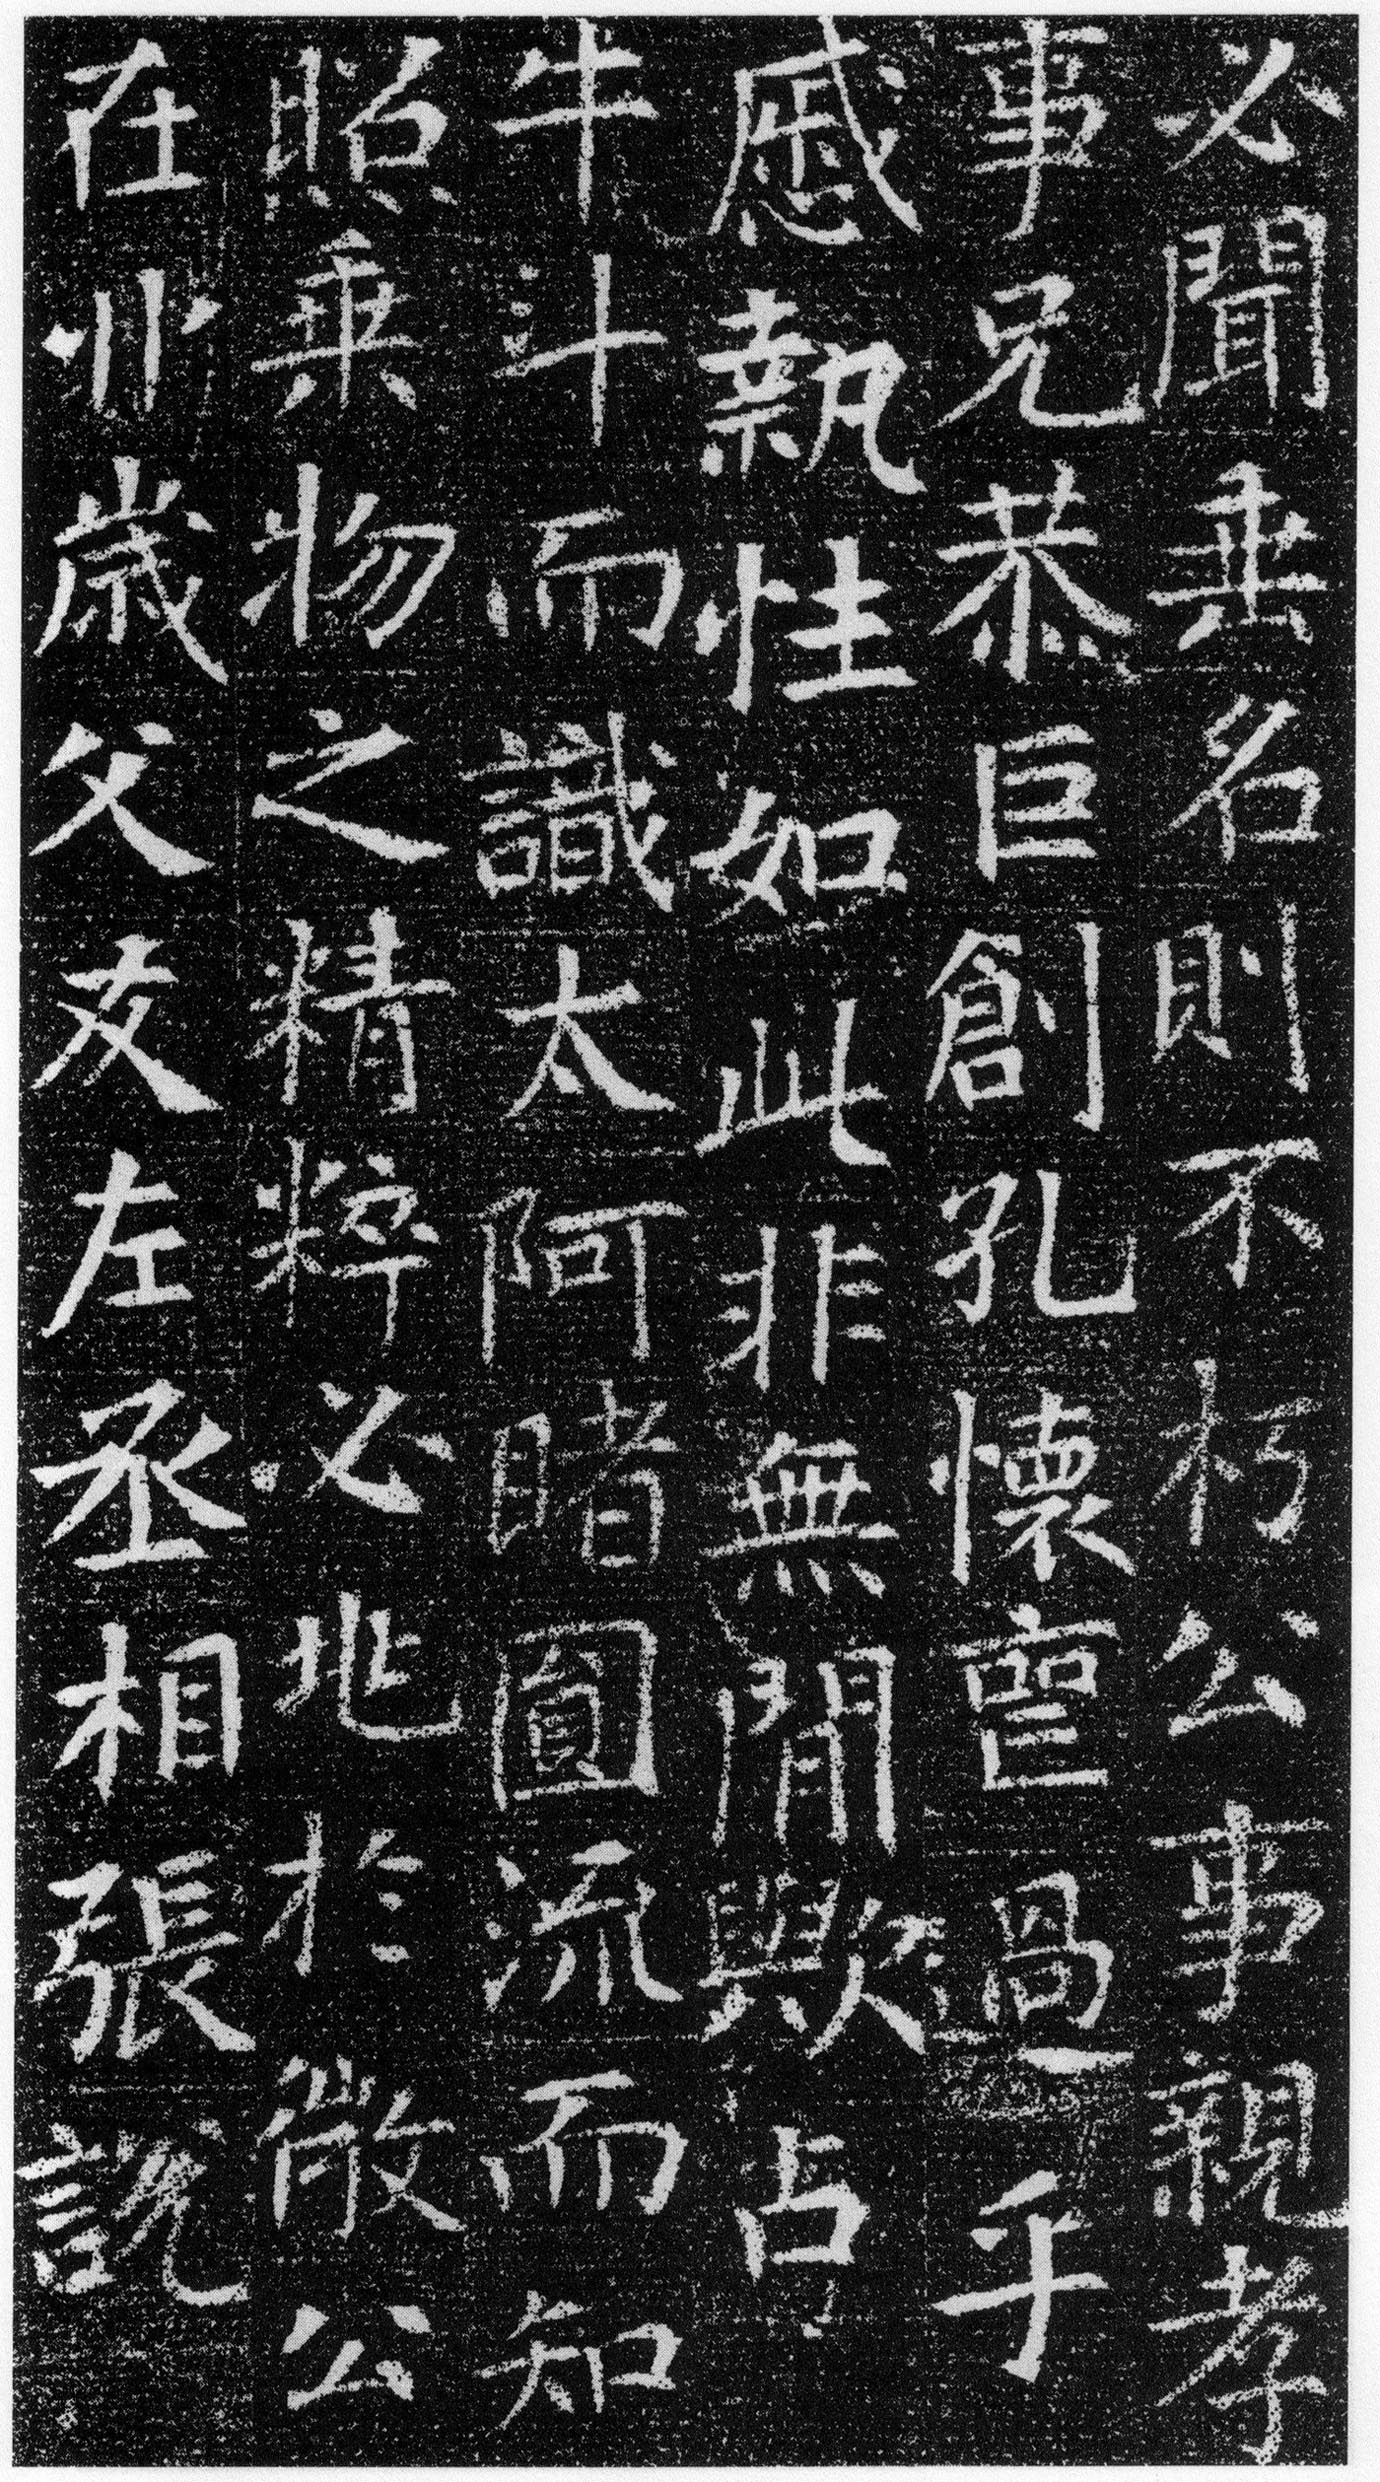 必聞垂名則不朽公事親孝
事兄恭巨創孔懷窅過乎
慼執性如此非無間歟占
牛斗而識太阿睹圓流而知
照乘物之精粹必兆於微公
在丱歲父友左丞相張說